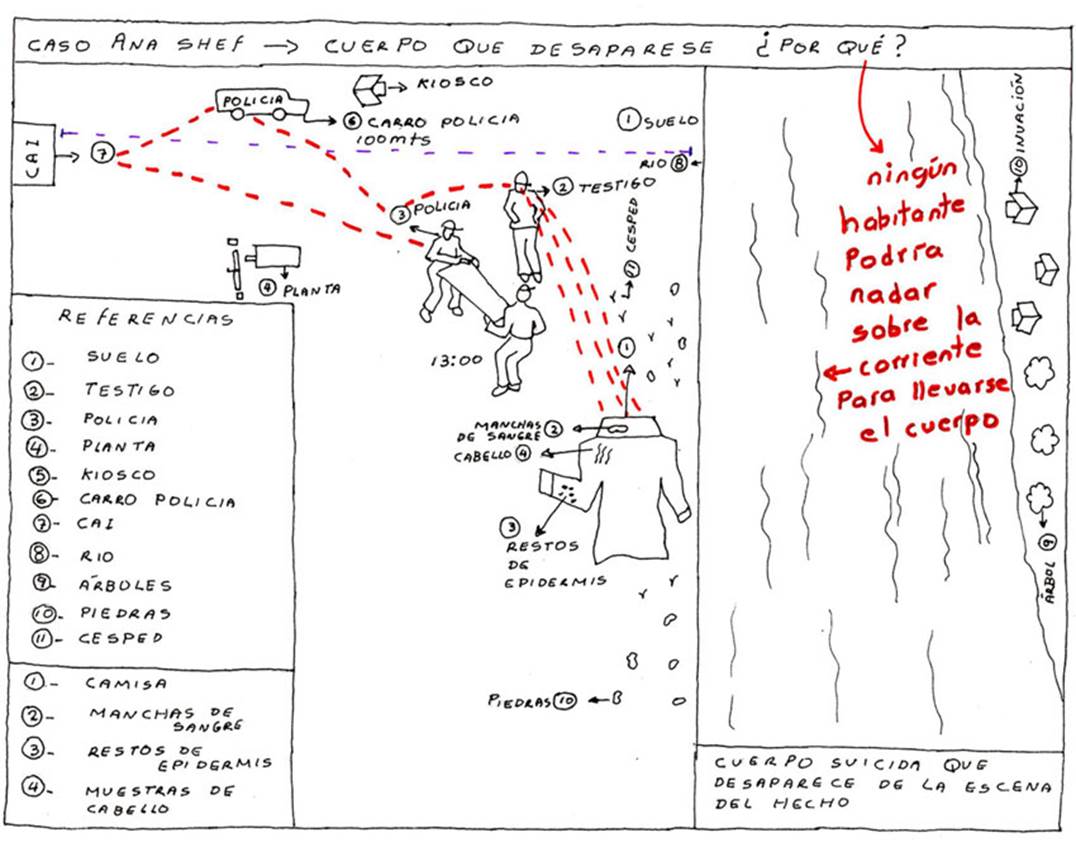 CASO ANA SHEF → CUERPO QUE DESAPARESE ¿POR QUÉ?
KIOSCO
POLICIA
⑥ CARRO POLICIA
100mts
① SUELO
CAI
⑦
RIO ⑧
② TESTIGO
③ POLICIA
⑪ CESPED
④ PLANTA
13:00
①
MANCHAS ②
DE SANGRE
CABELLO ④
③
RESTOS
DE
EPIDERMIS
PIEDRAS ⑩
ningún
habitante
Podría
nadar
sobre la
corriente
Para llevarse
el cuerpo
⑩ INVACIÓN
ÁRBOL ⑨
REFERENCIAS
①- SUELO
②- TESTIGO
③- POLICIA
④- PLANTA
⑤- KIOSCO
⑥- CARRO POLICIA
⑦- CAI
⑧- RIO
⑨- ÁRBOLES
⑩- PIEDRAS
⑪- CESPED
①- CAMISA
②- MANCHAS DE
SANGRE
③- RESTOS DE
EPIDERMIS
④- MUESTRAS DE
CABELLO
CUERPO SUICIDA QUE
DESAPARECE DE LA ESCENA
DEL HECHO